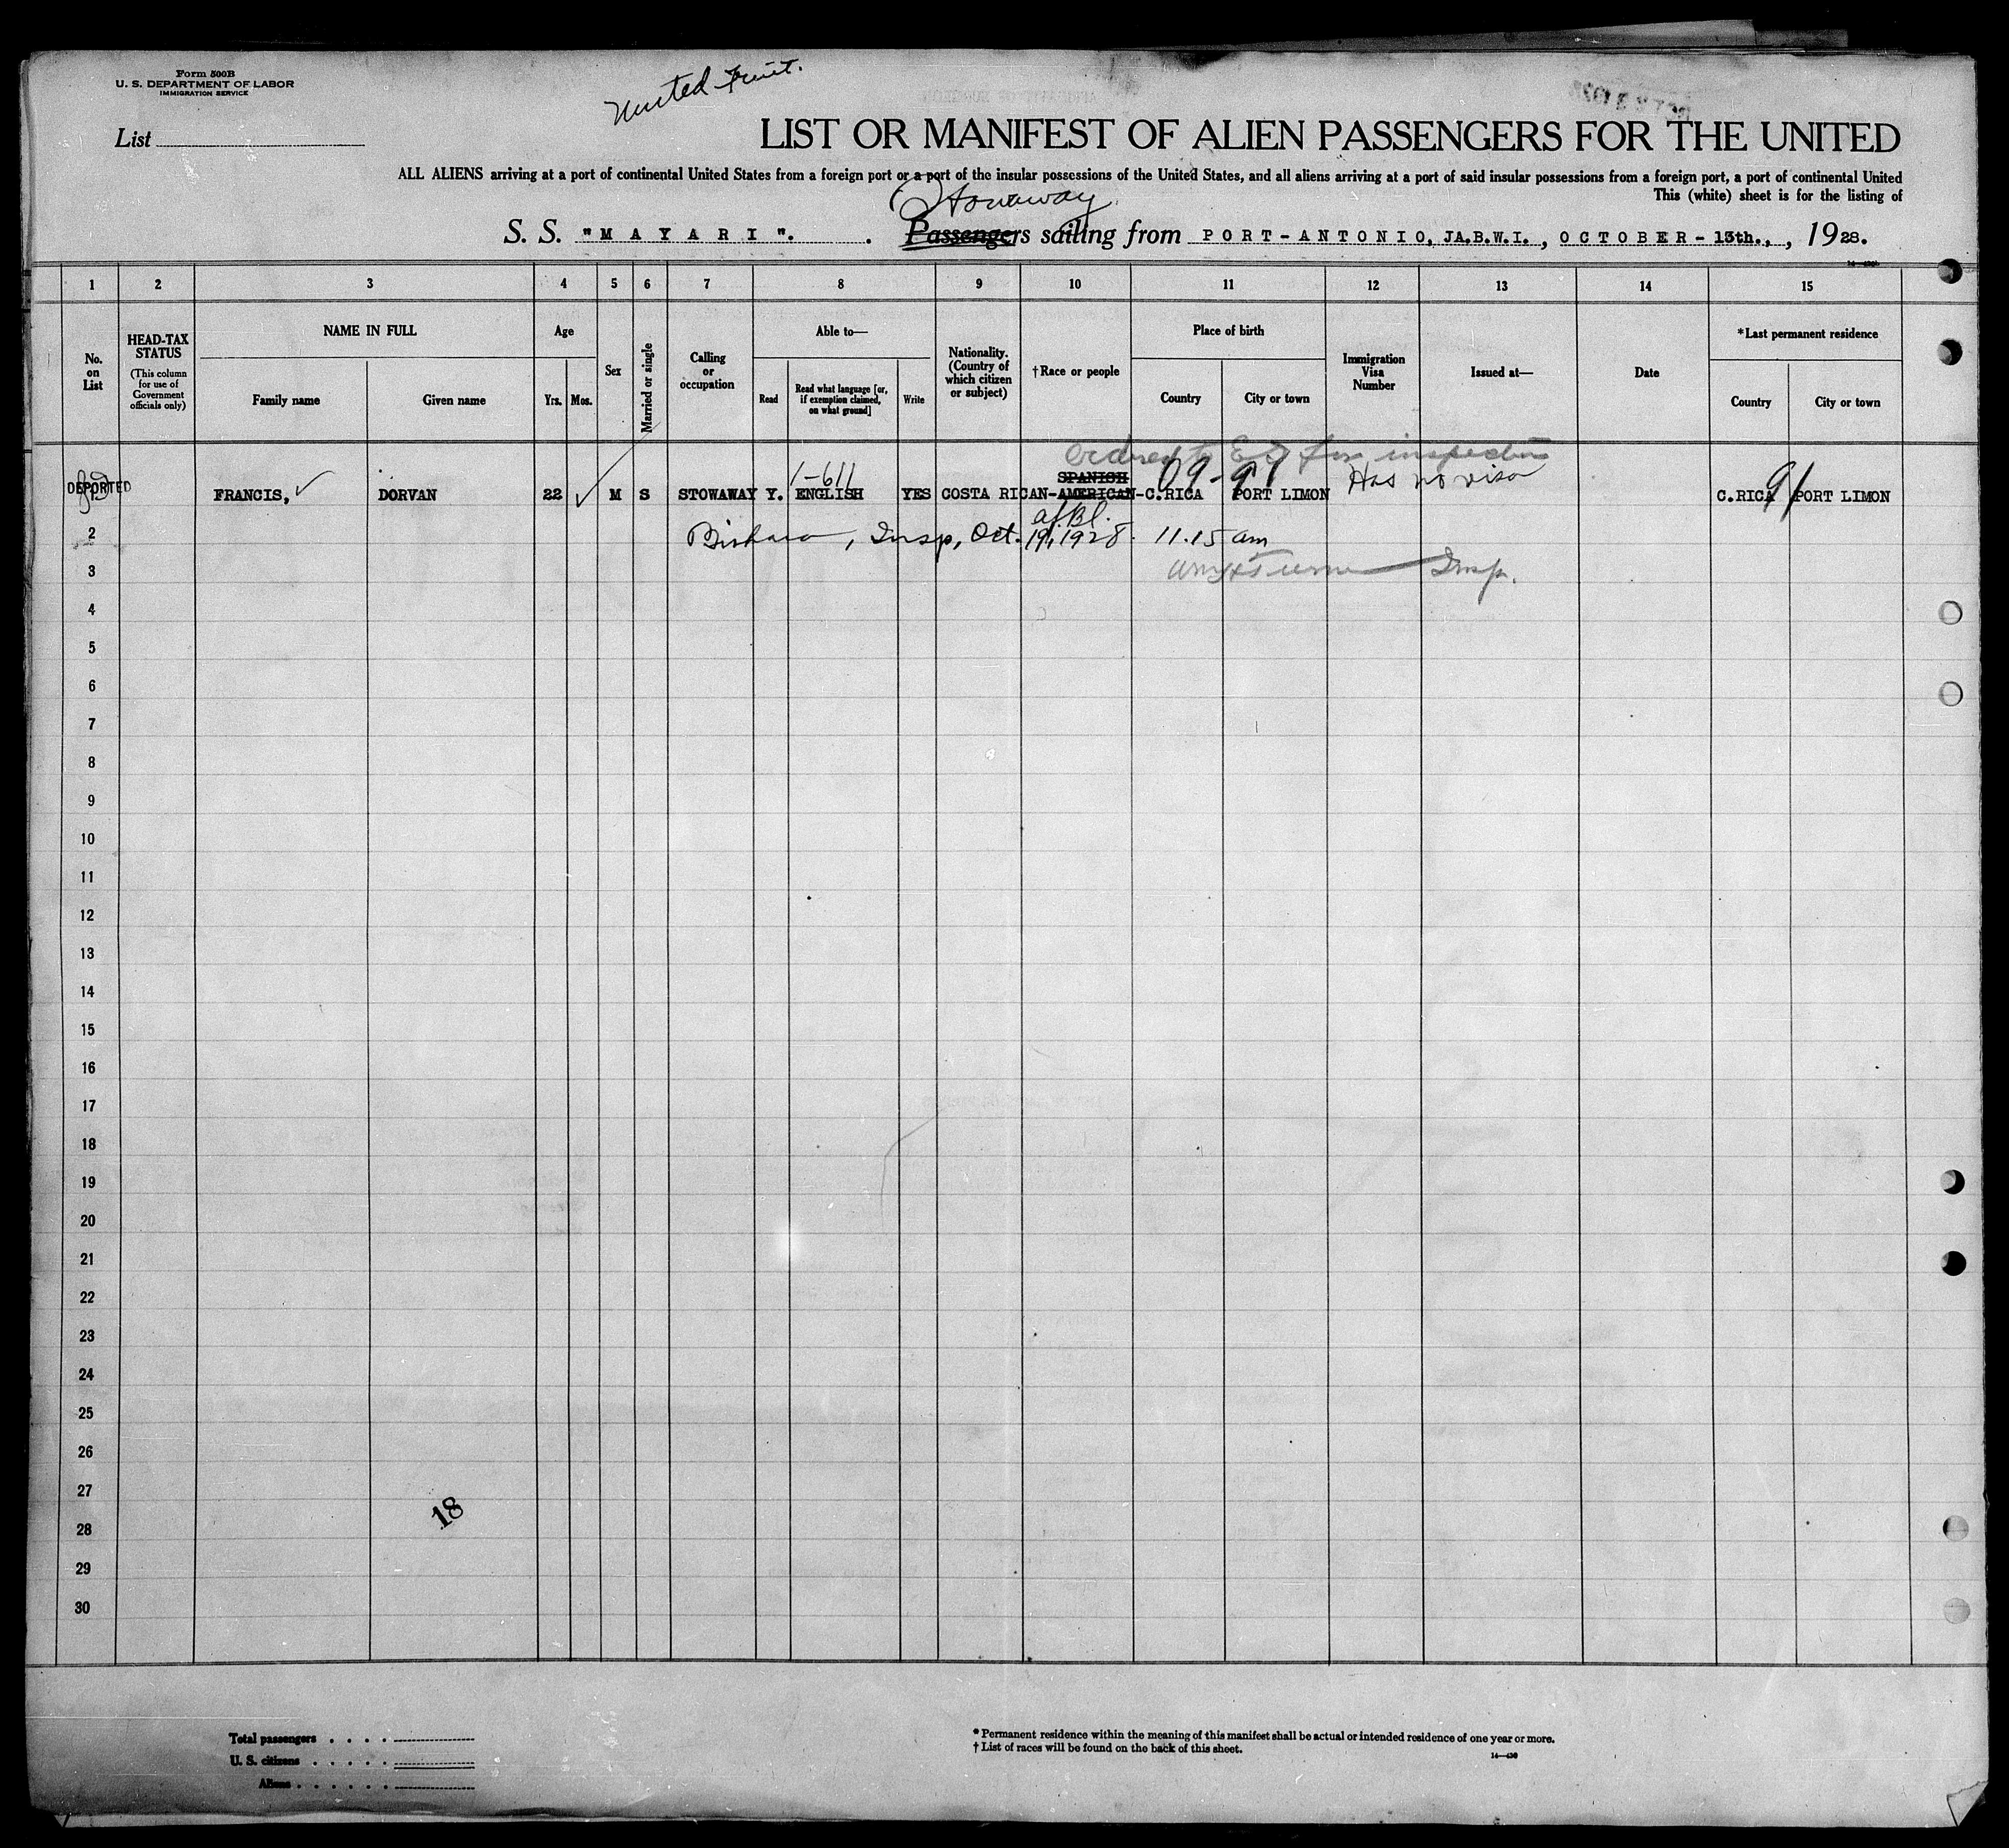 Form 500B
U. S. DEPARTMENT OF LABOR
IMMIGRATION SERVICE
United Fruit.
List
LIST OR MANIFEST OF ALIEN PASSENGERS FOR THE UNITED
ALL ALIENS arriving at a port of continental United States from a foreign port or a port of the insular possessions of the United States, and all aliens arriving at a port of said insular possessions from a foreign port, a port of continental United
This (white) sheet is for the listing of
Stowaway
S. S. "MAYARI". Passengers sailing from PORT-ANTONIO, JA.B.W.I., OCTOBER-13th., , 1928.
1 2 3 4 5 6 7 8 9 10 11 12 13 14 15
No. on List
HEAD-TAX STATUS
(This column for use of Government officials only)
NAME IN FULL
Family name
Given name
Age
Yrs.
Mos.
Sex
Married or single
Calling or occupation
Able to—
Read
Read what language [or, if exemption claimed, on what ground]
Write
Nationality. (Country of which citizen or subject)
†Race or people
Place of birth
Country
City or town
Immigration Visa Number
Issued at—
Date
*Last permanent residence
Country
City or town
Ordered to E I for inspection
1-611 SPANISH 09-91 Has no visa 91
DEPORTED FRANCIS, DORVAN 22 M S STOWAWAY Y. ENGLISH YES COSTA RICAN-AMERICAN-C.RICA PORT LIMON C.RICA PORT LIMON
af. Bl.
2 Insp, Oct. 19, 1928. 11.15 am
3 Turner Insp.
4
5
6
7
8
9
10
11
12
13
14
15
16
17
18
19
20
21
22
23
24
25
26
27
18
28
29
30
Total passengers
U. S. citizens
Aliens
* Permanent residence within the meaning of this manifest shall be actual or intended residence of one year or more.
† List of races will be found on the back of this sheet.
14—430